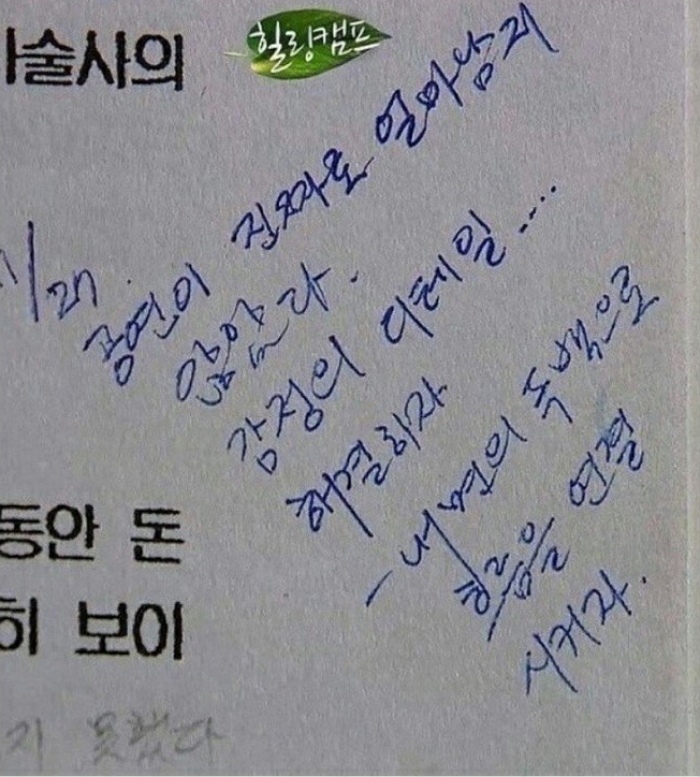 힐링캠프
술사의
1/27.
공연이 진짜로 일어나지
않았다.
감정의 디테일....
해결하자
- 내면의 독백으로
흐름을 연결
시키자.
동안 돈
히 보이
지 못했다